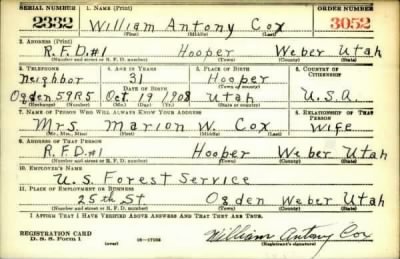 SERIAL NUMBER 1. NAME (Print) ORDER NUMBER
2332 William Antony Cox 3052
(First) (Middle) (Last)
2. ADDRESS (Print)
R.F.D.#1 Hooper Weber Utah
(Number and street or R. F. D. number) (Town) (County) (State)
3. TELEPHONE 4. AGE IN YEARS 5. PLACE OF BIRTH 6. COUNTRY OF CITIZENSHIP
neighbor 31 Hooper
DATE OF BIRTH (Town or county)
Ogden 59R5 Oct. 19 1908 Utah U.S.A.
(Exchange) (Number) (Mo.) (Day) (Yr.) (State or country)
7. NAME OF PERSON WHO WILL ALWAYS KNOW YOUR ADDRESS 8. RELATIONSHIP OF THAT PERSON
Mrs. Marion W. Cox Wife
(Mr., Mrs., Miss) (First) (Middle) (Last)
9. ADDRESS OF THAT PERSON
R.F.D.#1 Hooper Weber Utah
(Number and street or R. F. D. number) (Town) (County) (State)
10. EMPLOYER'S NAME
U.S. Forest Service
11. PLACE OF EMPLOYMENT OR BUSINESS
25th St. Ogden Weber Utah
(Number and street or R. F. D. number) (Town) (County) (State)
I AFFIRM THAT I HAVE VERIFIED ABOVE ANSWERS AND THAT THEY ARE TRUE.
REGISTRATION CARD William Antony Cox
D. S. S. Form 1 (Registrant's signature)